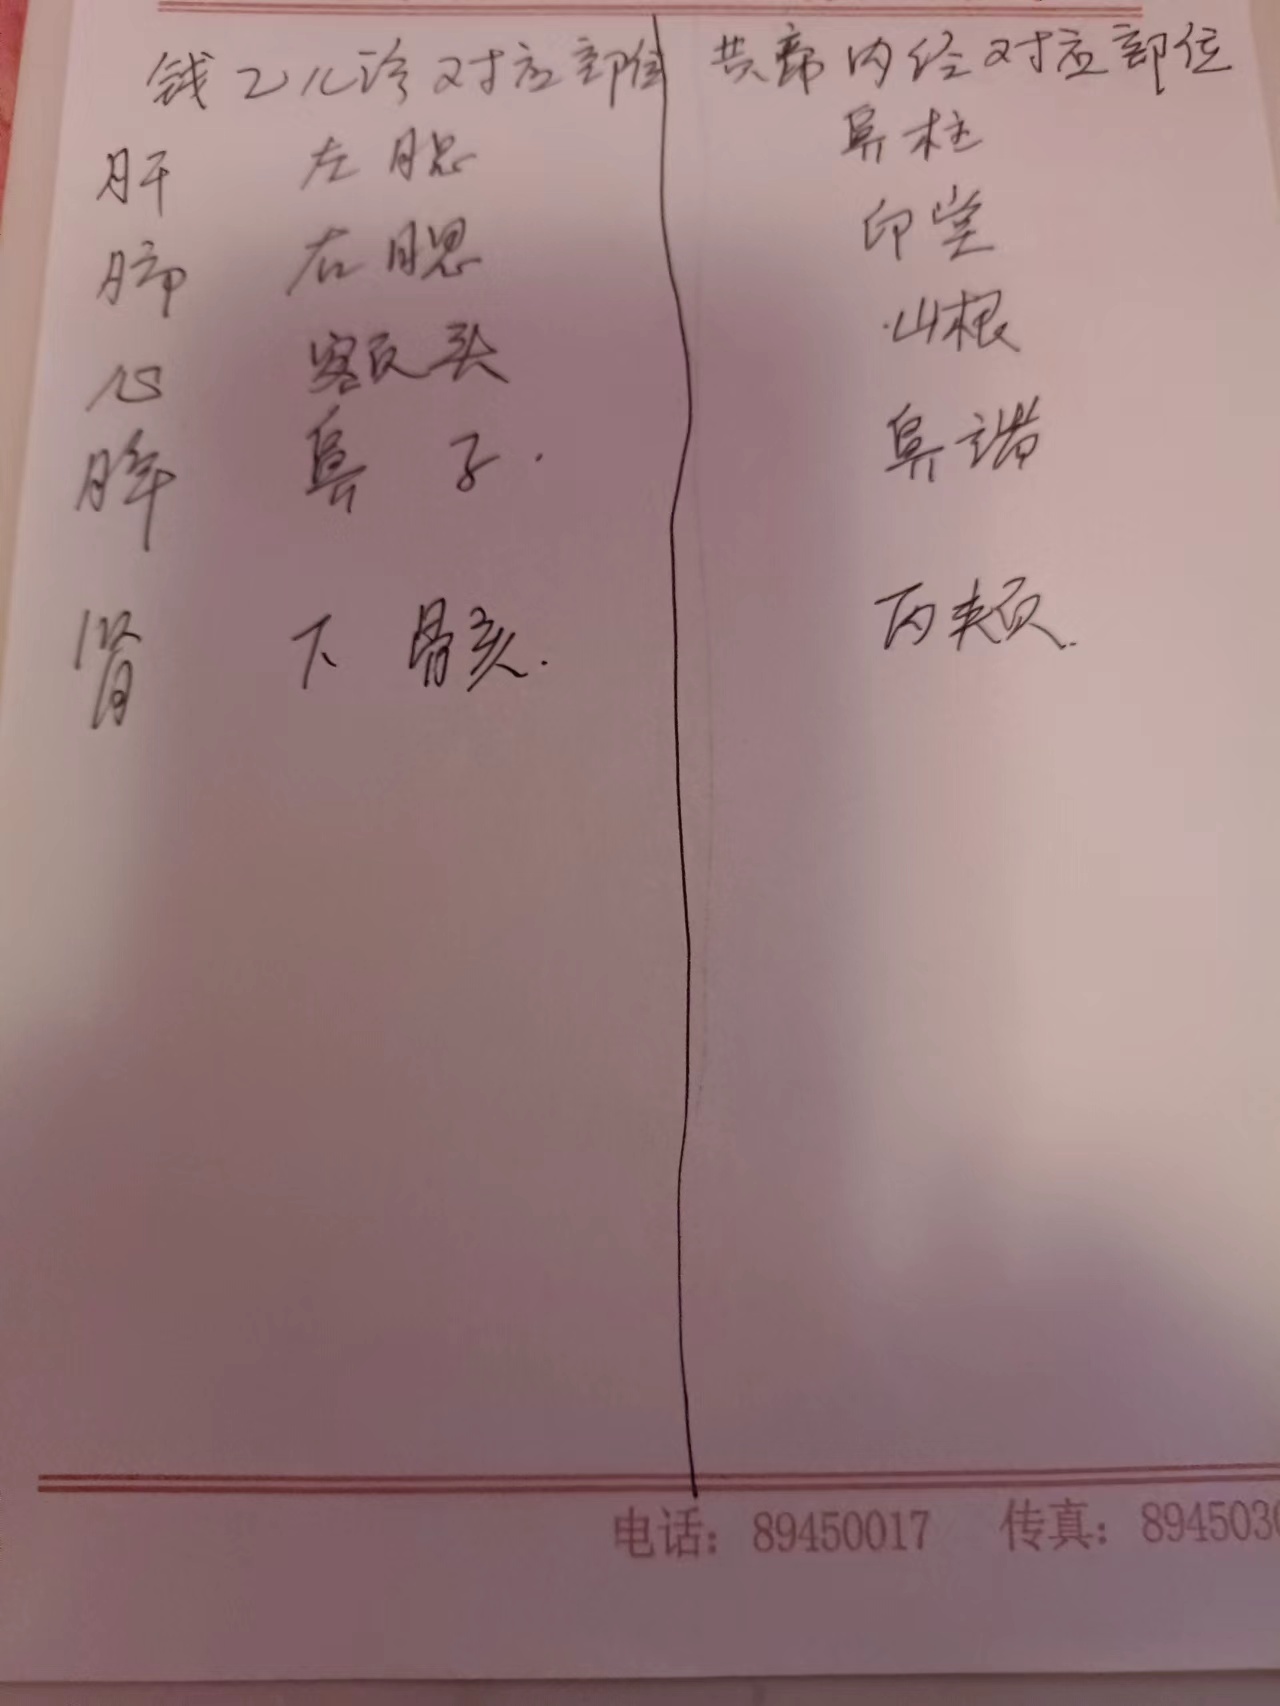 钱乙儿诊对应部位 黄帝内经对应部位
肝 左腮 鼻柱
肺 右腮 印堂
心 额头 山根
脾 鼻子. 鼻端
肾 下 骸. 两颊.
电话: 89450017 传真: 8945030